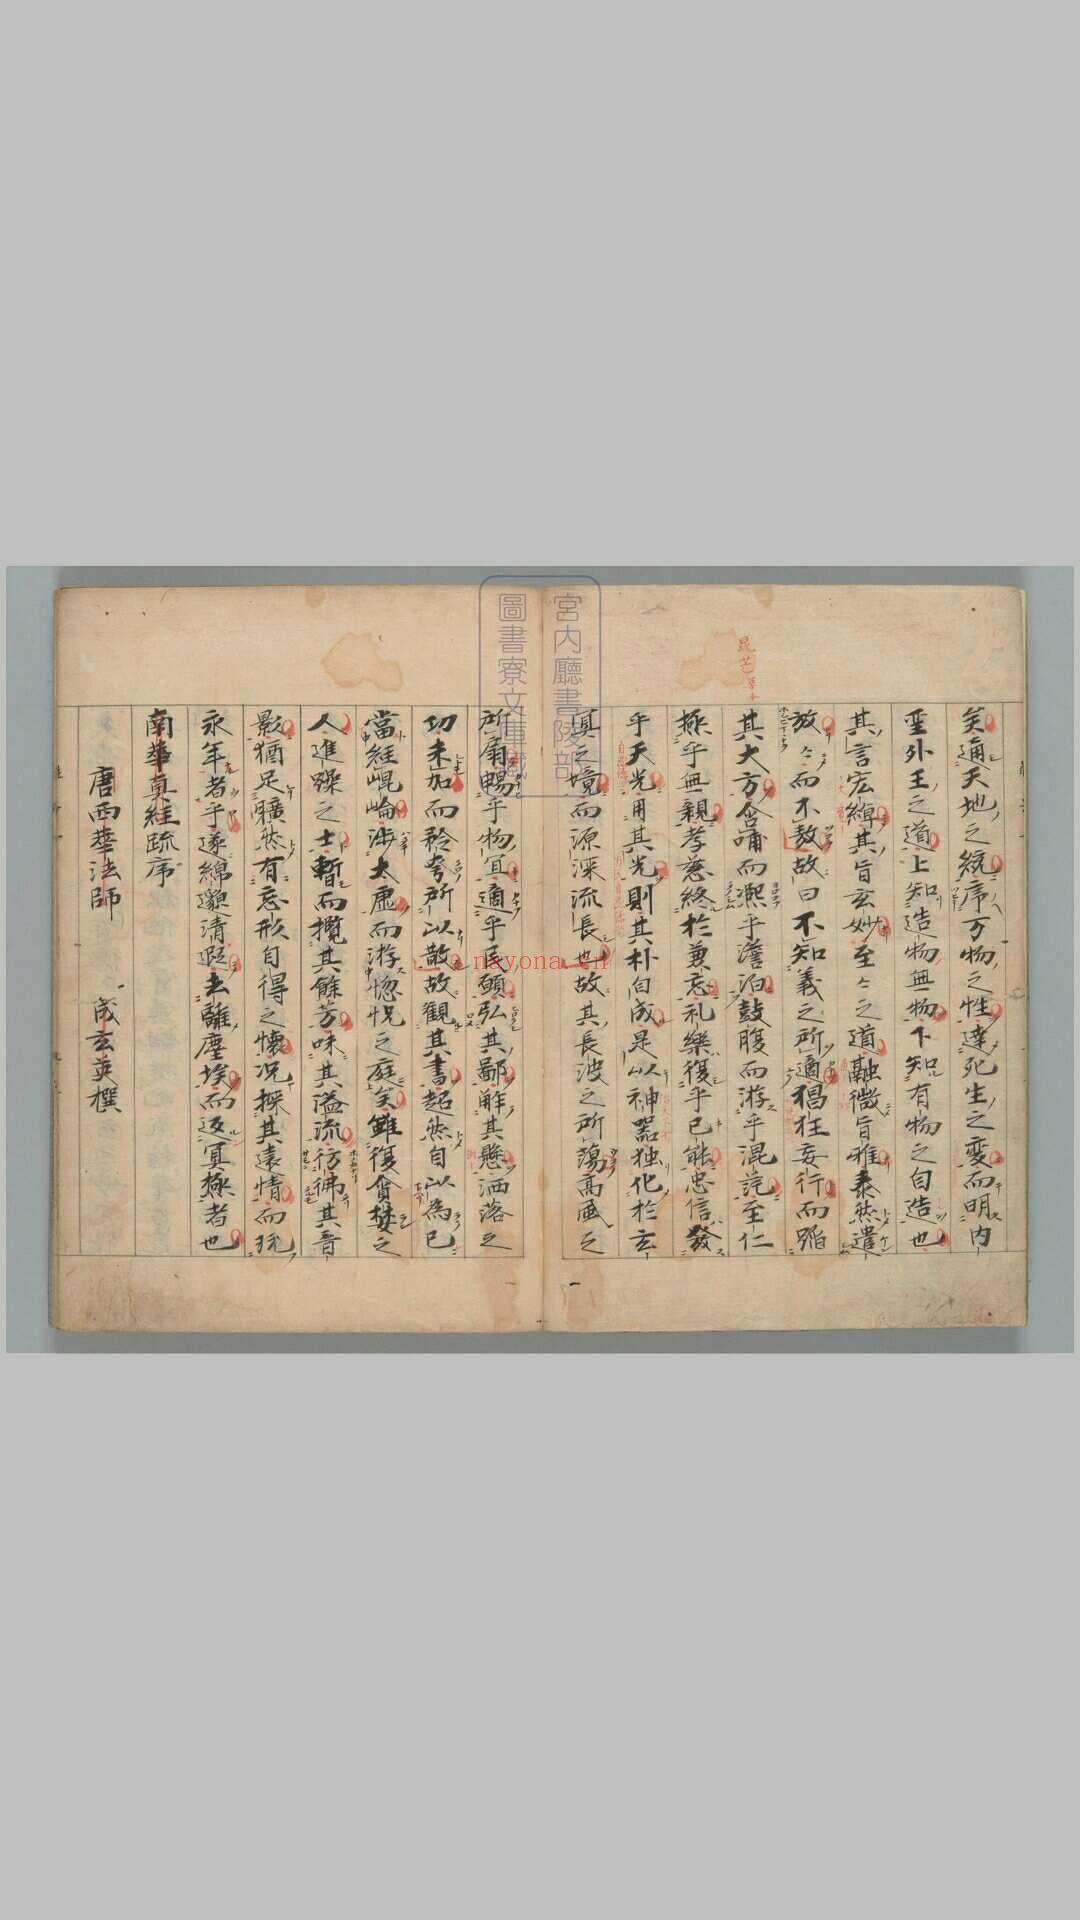 宮内廳書陵部
圖書寮文庫藏
昆芒
矣通天地之統序万物之性達死生之變而明内
聖外王之道上知造物無物下知有物之自造也
其言宏綽其旨玄妙至〻之道融微旨雅泰然遣
放〻而不敖故曰不知義之所適猖狂妄行而蹈
其大方含哺而凞乎澹泊鼓腹而游乎混茫至仁
極乎無親孝慈終於兼忘礼樂復乎已能忠信發
乎天光用其光則其朴自成是以神器独化於玄
冥之境而源深流長也故其長波之所蕩高風之
所扇暢乎物冝適乎民願弘其鄙解其懸洒落之
功未加而矜夸所以散故觀其書超然自以為已
當経崐崘涉太虚而游惚怳之庭矣雖復貪婪之
人進躁之士暫而攬其餘芳味其溢流彷彿其音
影猶足曠然有忘形自得之懐况探其遠情而玩
永年者乎遂綿邈清遐去離塵埃而返冥極者也
南華真経疏序
唐西華法師 成玄英撰
nayona.cn